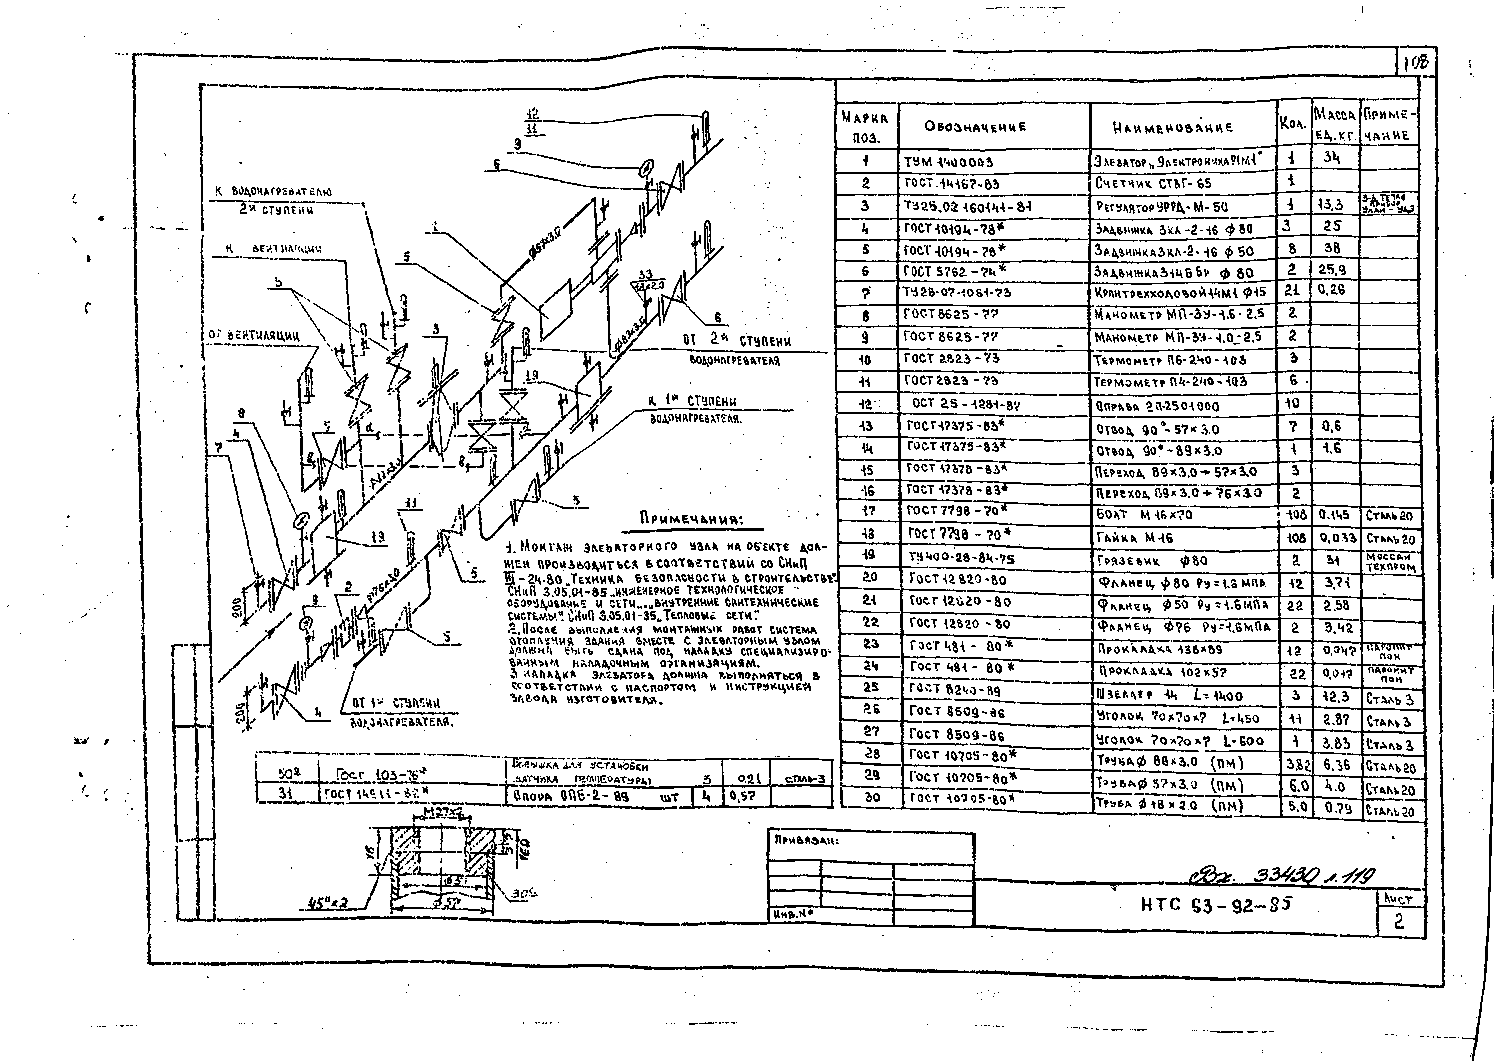 108
12
11
9
6
К ВОДОНАГРЕВАТЕЛЮ
2й СТУПЕНИ
1
К ВЕНТИЛЯЦИИ
5
5
33
ОТ ВЕНТИЛЯЦИИ
3
6
ОТ 2й СТУПЕНИ
ВОДОНАГРЕВАТЕЛЯ
19
К 1й СТУПЕНИ
ВОДОНАГРЕВАТЕЛЯ.
8
4
7
5
11
19
5
5
2
8
5
200
200
4
ОТ 1й СТУПЕНИ
ВОДОНАГРЕВАТЕЛЯ.
ПРИМЕЧАНИЯ:
1. МОНТАЖ ЭЛЕВАТОРНОГО УЗЛА НА ОБЪЕКТЕ ДОЛ-
ЖЕН ПРОИЗВОДИТЬСЯ В СООТВЕТСТВИИ СО СНиП
III-24-80 „ТЕХНИКА БЕЗОПАСНОСТИ В СТРОИТЕЛЬСТВЕ"
СНиП 3.05.01-85 „ИНЖЕНЕРНОЕ ТЕХНОЛОГИЧЕСКОЕ
ОБОРУДОВАНИЕ И СЕТИ", „ВНУТРЕННИЕ САНТЕХНИЧЕСКИЕ
СИСТЕМЫ". СНиП 3.05.01-85 „ТЕПЛОВЫЕ СЕТИ".
2. ПОСЛЕ ВЫПОЛНЕНИЯ МОНТАЖНЫХ РАБОТ СИСТЕМА
ОТОПЛЕНИЯ ЗДАНИЯ ВМЕСТЕ С ЭЛЕВАТОРНЫМ УЗЛОМ
ДОЛЖНА БЫТЬ СДАНА ПОД НАЛАДКУ СПЕЦИАЛИЗИРО-
ВАННЫМ НАЛАДОЧНЫМ ОРГАНИЗАЦИЯМ.
3 НАЛАДКА ЭЛЕВАТОРА ДОЛЖНА ВЫПОЛНЯТЬСЯ В
СООТВЕТСТВИИ С ПАСПОРТОМ И ИНСТРУКЦИЕЙ
ЗАВОДА ИЗГОТОВИТЕЛЯ.
МАРКА ПОЗ. ОБОЗНАЧЕНИЕ НАИМЕНОВАНИЕ КОЛ. МАССА ЕД.КГ. ПРИМЕ-ЧАНИЕ
1 ТУМ 1400003 ЭЛЕВАТОР „ЭЛЕКТРОНИКА Р1М1" 1 34
2 ГОСТ 14167-83 СЧЕТЧИК СТВГ-65 1
3 ТУ25.02.160141-81 РЕГУЛЯТОР УРРД-М-50 1 13,3
4 ГОСТ 10194-78* ЗАДВИЖКА ЗКЛ-2-16 Ф80 3 25
5 ГОСТ 10194-78* ЗАДВИЖКА ЗКЛ-2-16 Ф50 8 38
6 ГОСТ 5762-74* ЗАДВИЖКА 31Ч6БР Ф80 2 25,9
7 ТУ26-07-1061-73 КРАН ТРЕХХОДОВОЙ 14М1 Ф15 21 0,26
8 ГОСТ 8625-77 МАНОМЕТР МП-3У-1.6-2,5 2
9 ГОСТ 8625-77 МАНОМЕТР МП-3У-1.0-2,5 2
10 ГОСТ 2823-73 ТЕРМОМЕТР П6-240-103 3
11 ГОСТ 2823-73 ТЕРМОМЕТР П4-240-103 6
12 ОСТ 25-1281-87 ОПРАВА 2П-250 1000 10
13 ГОСТ 17375-83* ОТВОД 90°-57×3.0 7 0,6
14 ГОСТ 17375-83* ОТВОД 90°-89×3.0 1 1.6
15 ГОСТ 17378-83* ПЕРЕХОД 89×3.0-57×3.0 3
16 ГОСТ 17378-83* ПЕРЕХОД 89×3.0-76×3.0 2
17 ГОСТ 7798-70* БОЛТ М16×70 108 0.145 СТАЛЬ 20
18 ГОСТ 7798-70* ГАЙКА М16 108 0,033 СТАЛЬ 20
19 ТУ400-28-84-75 ГРЯЗЕВИК Ф80 2 31 МОССАНТЕХПРОМ
20 ГОСТ 12820-80 ФЛАНЕЦ Ф80 Ру=1.6МПА 12 3,71
21 ГОСТ 12820-80 ФЛАНЕЦ Ф50 Ру=1.6МПА 22 2.58
22 ГОСТ 12820-80 ФЛАНЕЦ Ф76 Ру=1.6МПА 2 3,42
23 ГОСТ 481-80* ПРОКЛАДКА 138×89 12 0,047 ПАРОНИТ ПОН
24 ГОСТ 481-80* ПРОКЛАДКА 102×57 22 0,017 ПАРОНИТ ПОН
25 ГОСТ 8240-89 ШВЕЛЛЕР 14 L=1400 3 12.3 СТАЛЬ 3
26 ГОСТ 8509-86 УГОЛОК 70×70×7 L=450 11 2.87 СТАЛЬ 3
27 ГОСТ 8509-86 УГОЛОК 70×70×7 L=600 1 3.83 СТАЛЬ 3
28 ГОСТ 10705-80* ТРУБА Ф 88×3.0 (ПМ) 3,82 6,36 СТАЛЬ 20
29 ГОСТ 10705-80* ТРУБА Ф 57×3.0 (ПМ) 6.0 4.0 СТАЛЬ 20
30 ГОСТ 10705-80* ТРУБА Ф 18×2.0 (ПМ) 5.0 0.79 СТАЛЬ 20
30а ГОСТ 103-76* БОБЫШКА ДЛЯ УСТАНОВКИ ДАТЧИКА ТЕМПЕРАТУРЫ 5 0.21 СТАЛЬ-3
31 ГОСТ 14911-82* ОПОРА ОПБ-2-89 ШТ 4 0,57
М27×2
45°×2
Ф57
30а
ПРИВЯЗАН:
ИНВ.№
Вх. 33430 л.119
НТС 63-92-85
ЛИСТ
2